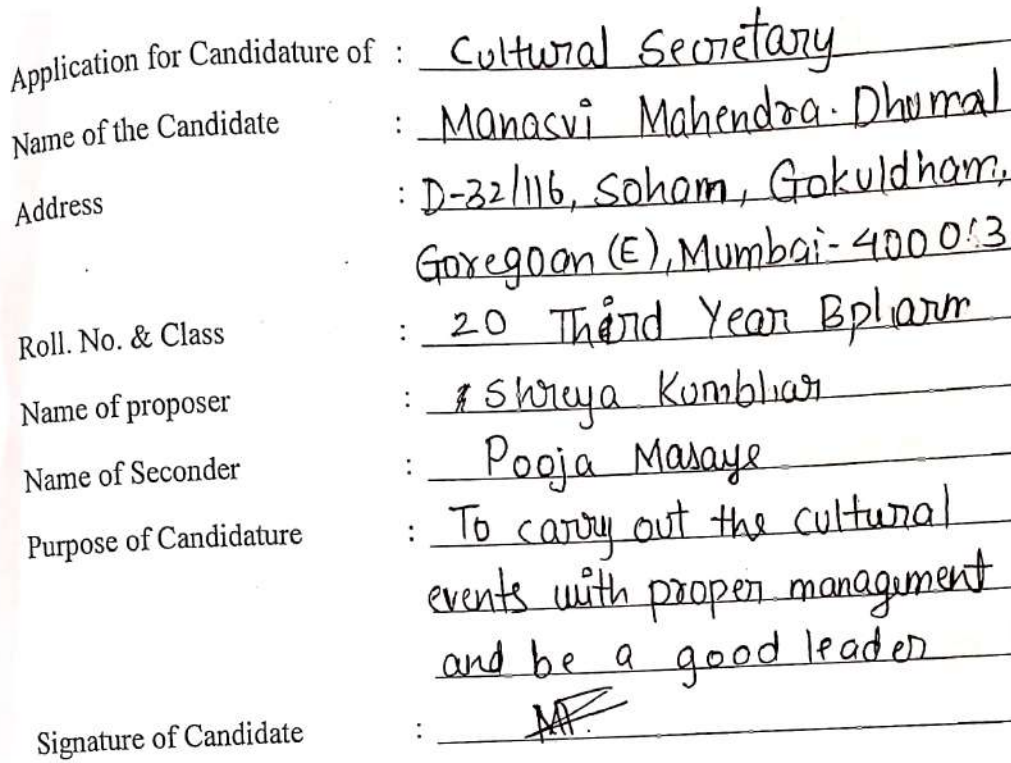 Application for Candidature of : Cultural Secretary
Name of the Candidate : Manasvi Mahendra. Dhumal
Address : D-32/116, Soham, Gokuldham,
Goregoan (E), Mumbai- 400 013
Roll. No. & Class : 20 Third Year Bpharm
Name of proposer : Shreya Kumbhar
Name of Seconder : Pooja Masaye
Purpose of Candidature : To carry out the cultural
events with proper management
and be a good leader
Signature of Candidate :